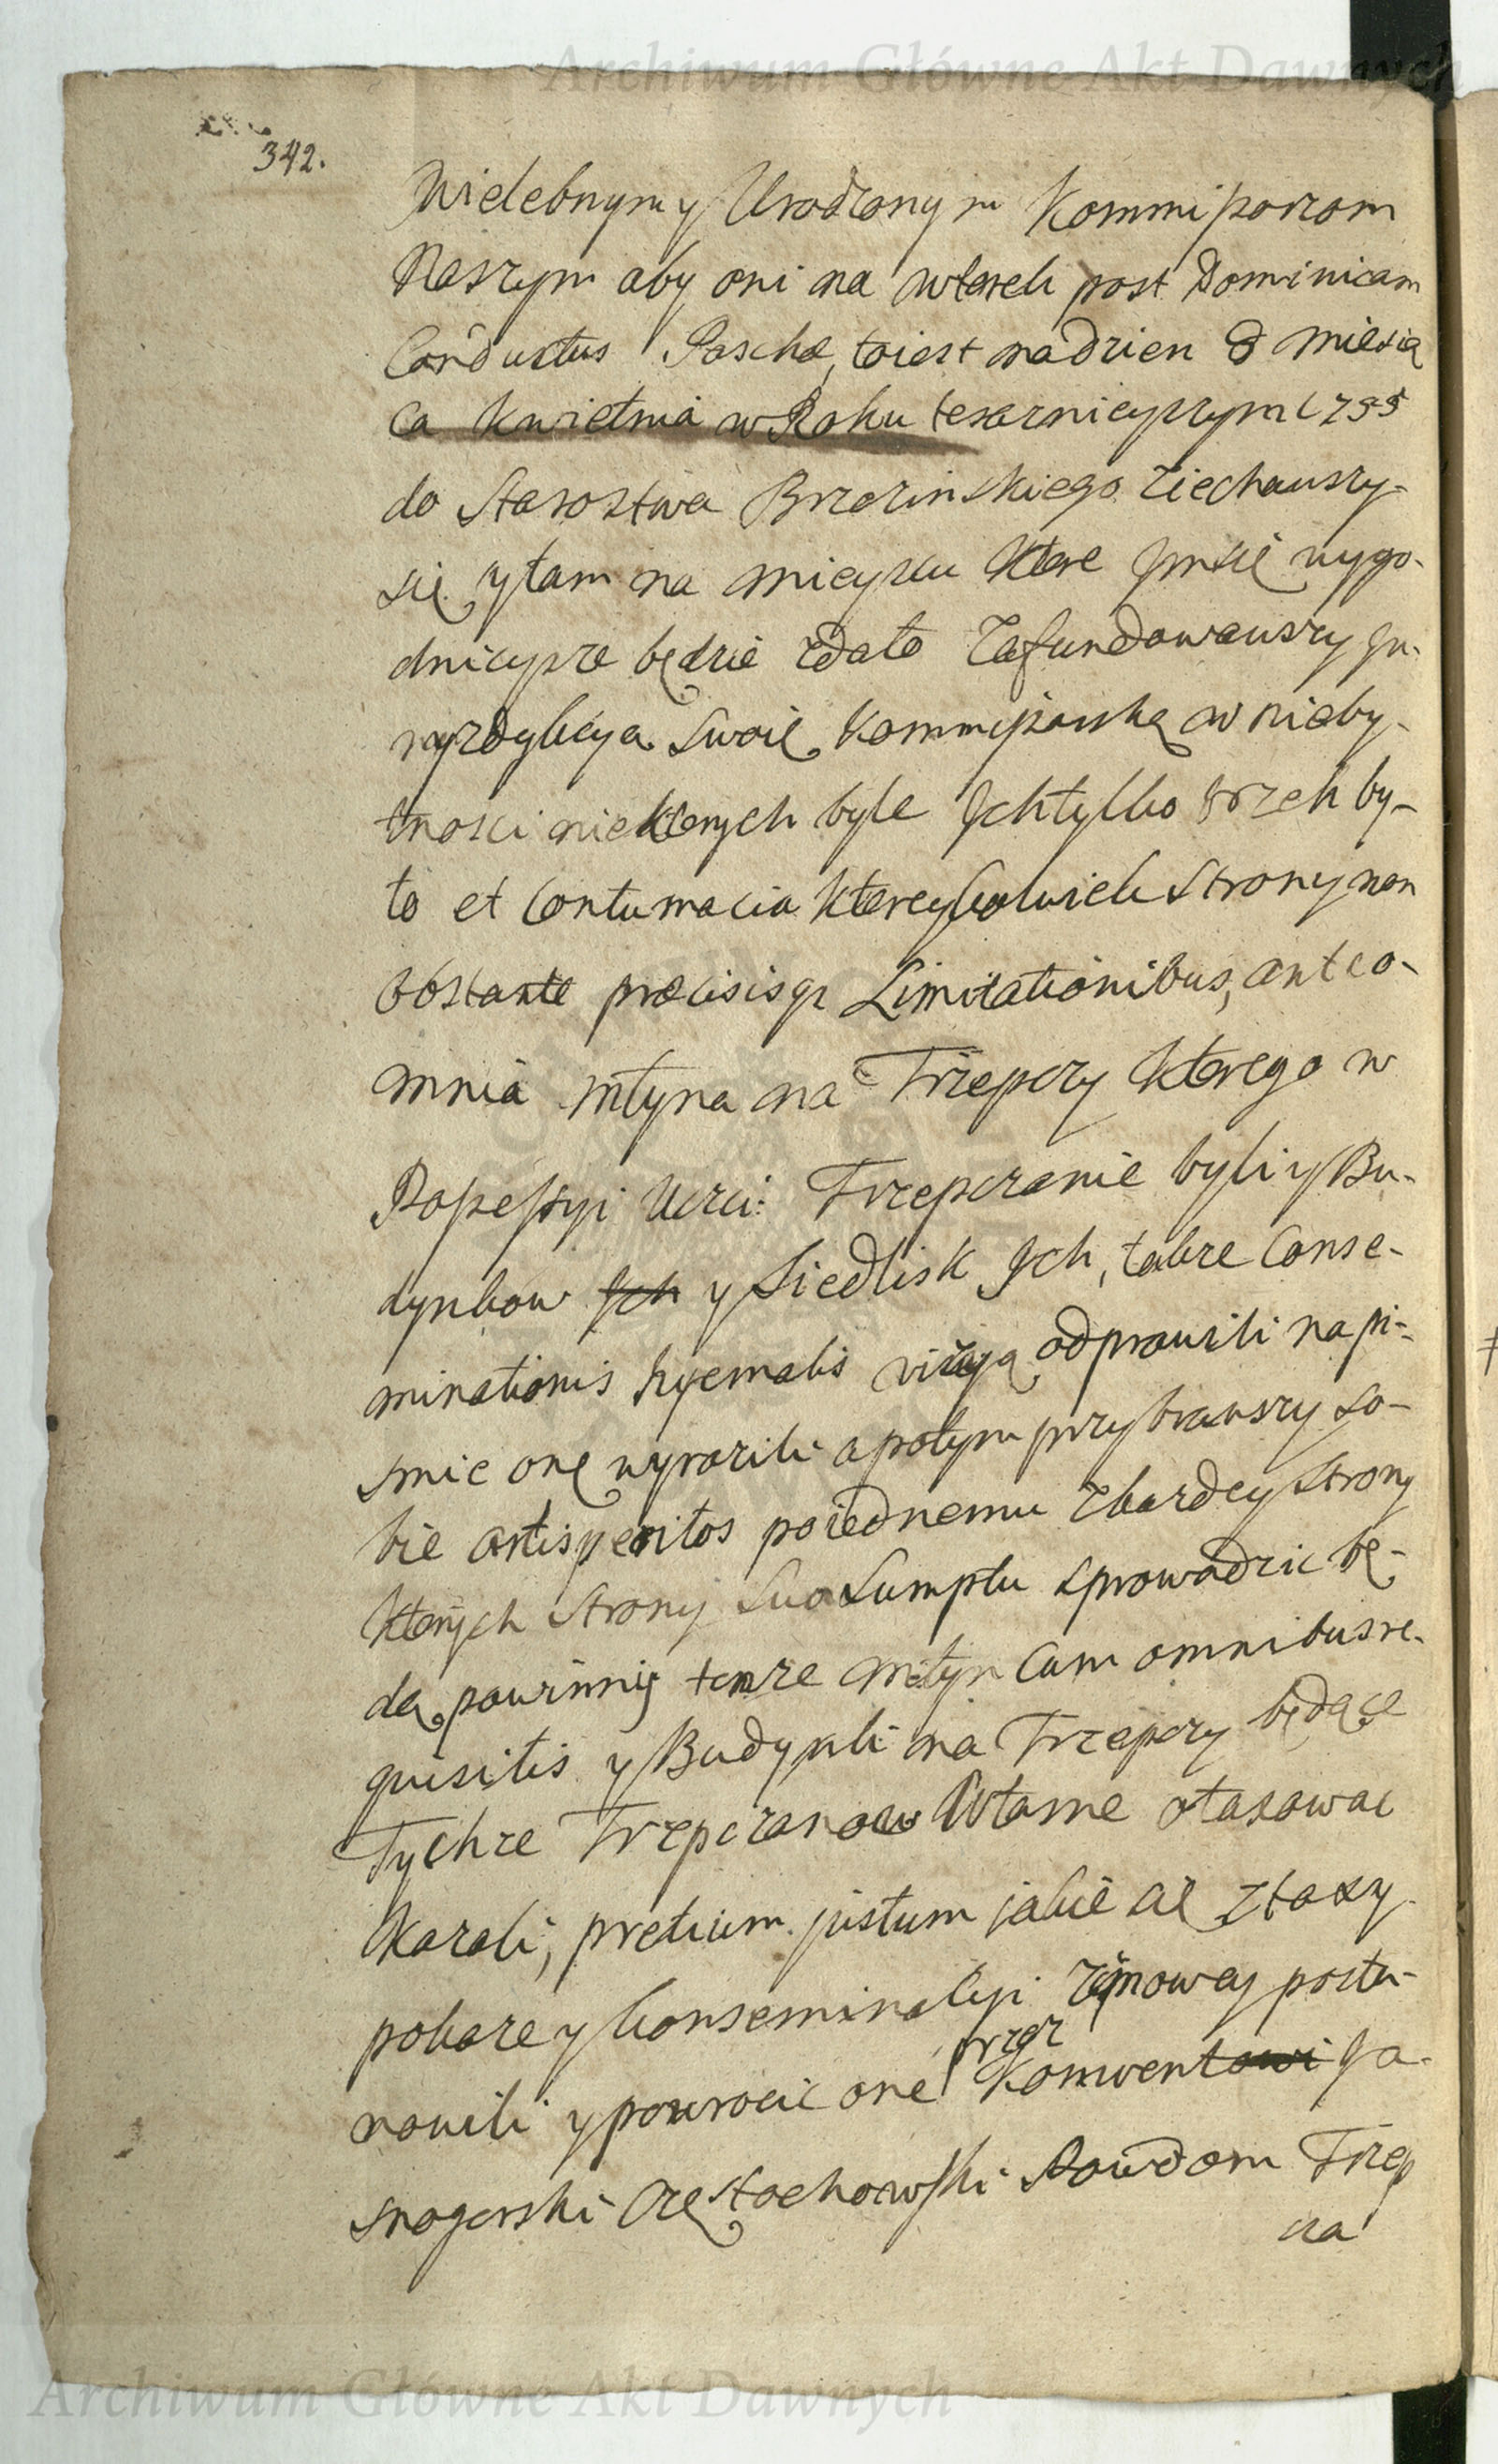 Archiwum Główne Akt Dawnych
342.
Wielebnym y Urodzonym Kommissarzom
Naszym aby oni na wtorek post Dominicam
Conductus Paschæ, toiest na dzien 8 miesią
ca Kwietnia w Roku teraznieyszym 1755
do Starostwa Brzezinskiego ziechawszy-
się y tam na mieyscu ktore Jm się wygo-
dnieysze będzie zdało Zafundowawszy Ju-
ryzdykcyą Swoię Kommissarską w nieby-
tnosci niektorych byle Jch tylko trzech by-
ło et Contumacia ktoreykolwiek Strony non
obstante præcisisqz Limitationibus, ante o-
mnia młyna na Trzepczy ktorego w
Possessyi Uczci: Trzepczanie byli y Bu-
dynkow Jch y Siedlisk Jch, także Conse-
minationis hyemalis wizyą odprawili na pi-
smie onę wyrazili a potym przybrawszy So-
bie artis peritos poiednemu zkazdey Strony
ktorych Strony Suo Sumptu sprowadzic bę-
dą powinny tenze młyn Cum omnibus re-
quisitis y Budynki na Trzepczy będące
Tychze Trzepczanow Własne otaxowac
Kazali, pretium justum jakie się z taxy
pokaze y konseminacyi zimowey posta-
nowili y powrocic one przez Konwentowi Ja-
snogorski Częstochowski Sowdom Trzep
cza
Archiwum Główne Akt Dawnych